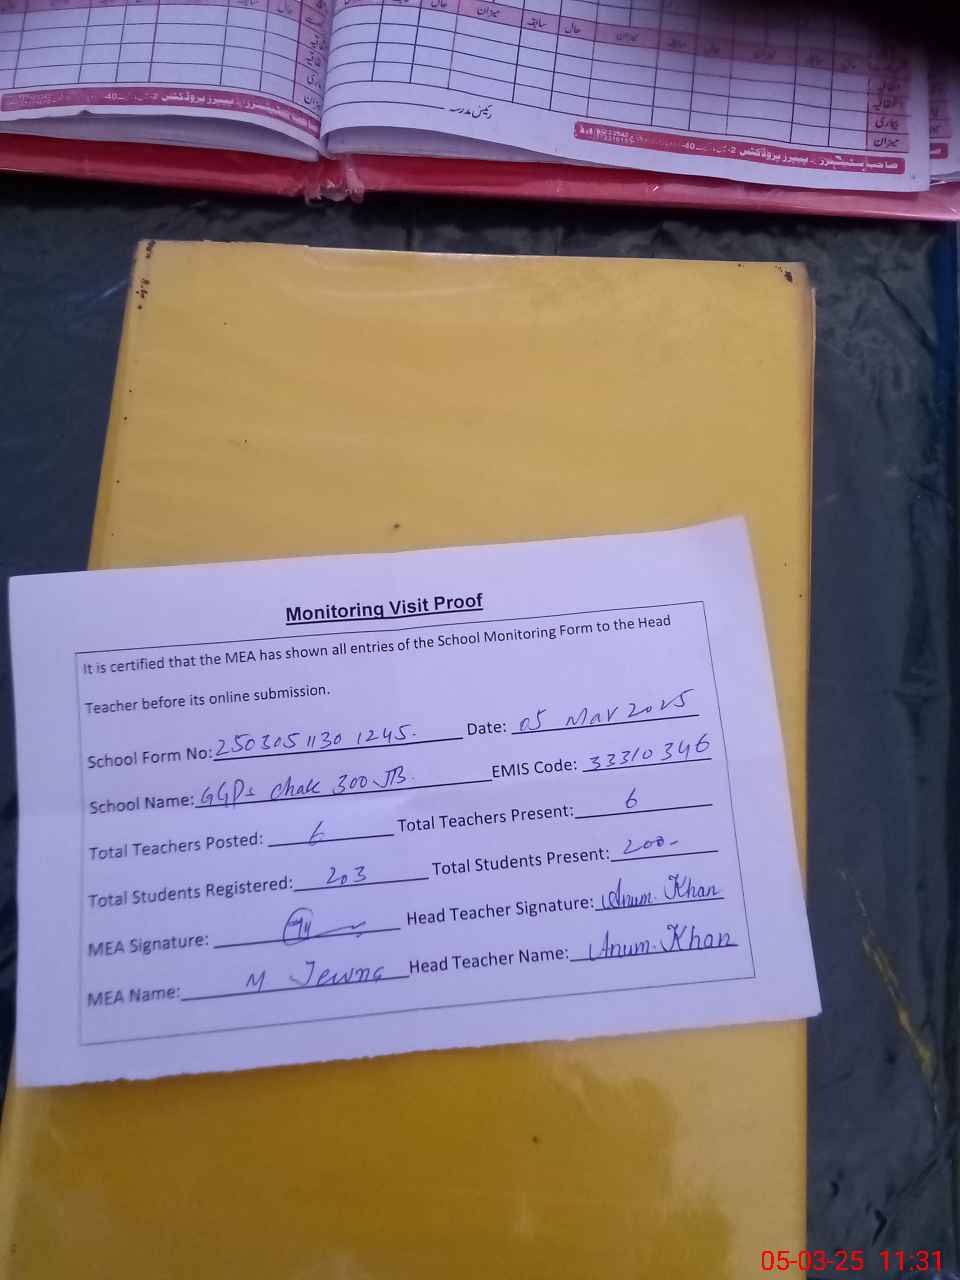 میزان
سابقہ
حال
میزان
سابقہ
حال
میزان
رئیس مدرسہ
بیماری
میزان
Monitoring Visit Proof
It is certified that the MEA has shown all entries of the School Monitoring Form to the Head
Teacher before its online submission.
School Form No: 250305 1130 1245. Date: 05 Mar 2025
School Name: GGPS Chak 300 JB. EMIS Code: 33310346
Total Teachers Posted: 6 Total Teachers Present: 6
Total Students Registered: 203 Total Students Present: 200-
MEA Signature: Head Teacher Signature: Anum. Khan
MEA Name: M Head Teacher Name: Anum. Khan
05-03-25 11:31